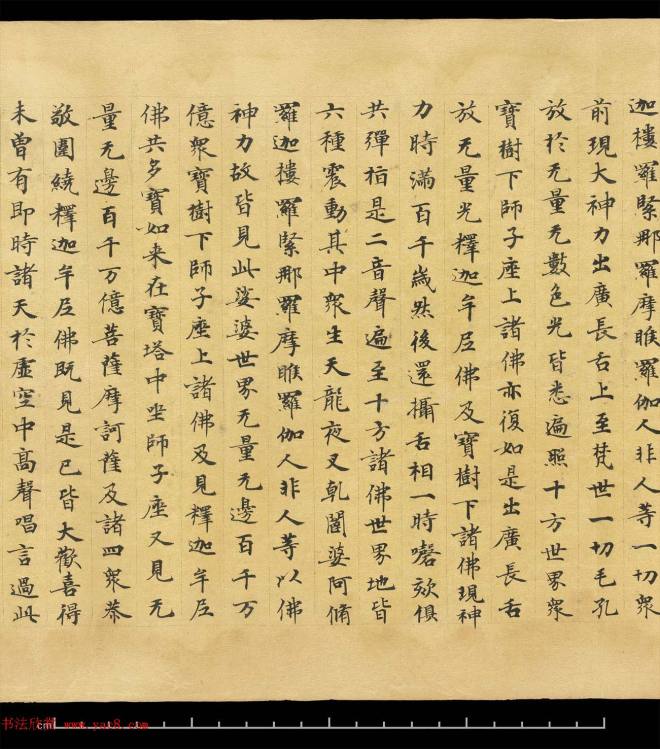 迦樓羅緊那羅摩睺羅伽人非人等一切衆
前現大神力出廣長舌上至梵世一切毛孔
放於无量无數色光皆悉遍照十方世界衆
寶樹下師子座上諸佛亦復如是出廣長舌
放无量光釋迦牟尼佛及寶樹下諸佛現神
力時滿百千歲然後還攝舌相一時謦欬俱
共彈指是二音聲遍至十方諸佛世界地皆
六種震動其中衆生天龍夜叉乹闥婆阿脩
羅迦樓羅緊那羅摩睺羅伽人非人等以佛
神力故皆見此娑婆世界无量无邊百千万
億衆寶樹下師子座上諸佛及見釋迦牟尼
佛共多寶如来在寶塔中坐師子座又見无
量无邊百千万億菩薩摩訶薩及諸四衆恭
敬圍繞釋迦牟尼佛既見是已皆大歡喜得
未曾有即時諸天於虛空中高聲唱言過此
书法欣赏 www.yac8.com
cm